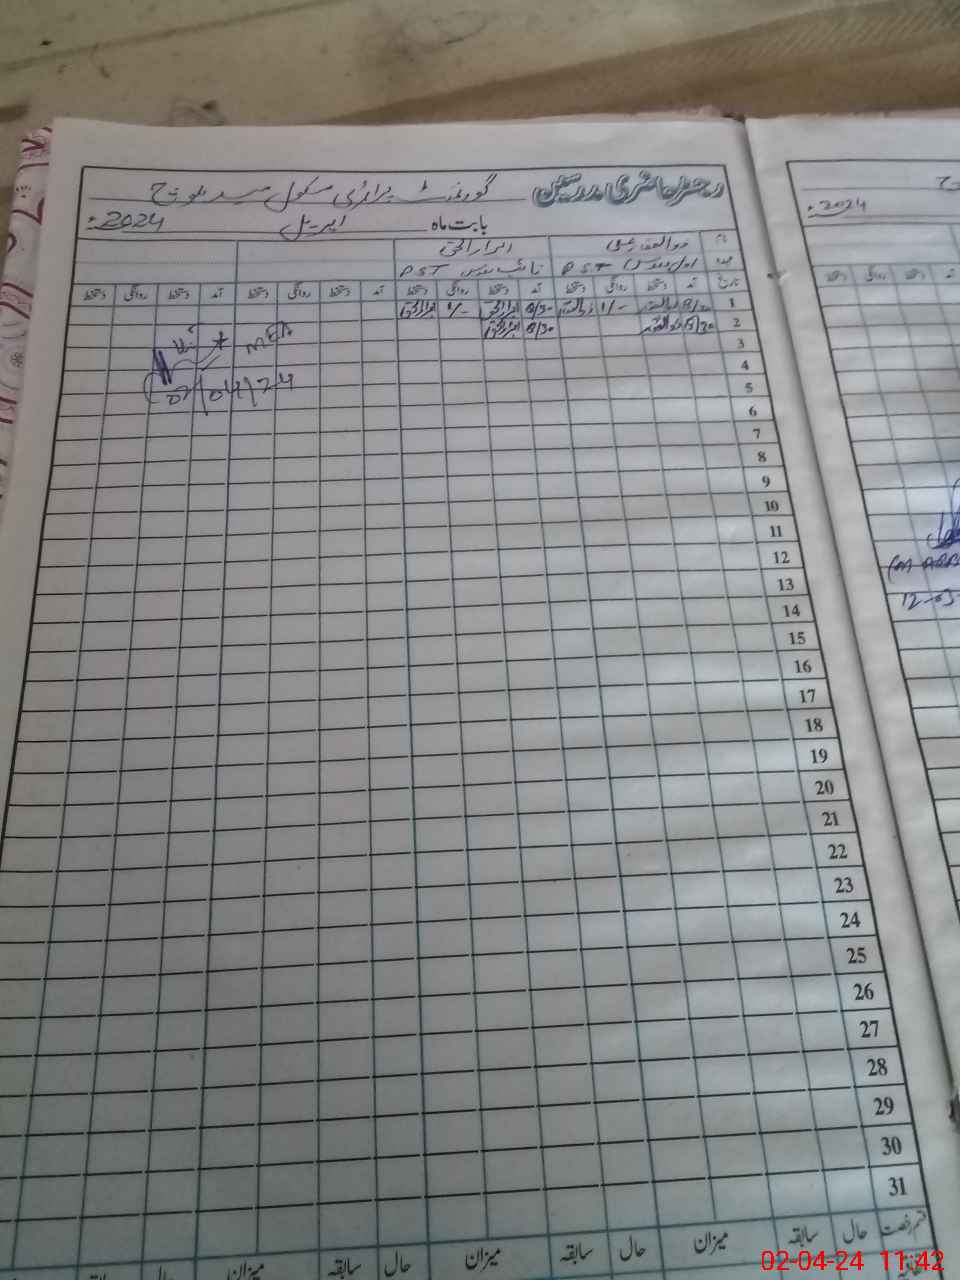 رجسٹر حاضری مدرسین گورنمنٹ پرائمری سکول
بابت ماہ اپریل 2024
نام ذوالفقار علی ابرارالحق
عہدہ اول مدرس PST نائب مدرس PST
تاریخ آمد دستخط روانگی دستخط آمد دستخط روانگی دستخط آمد دستخط روانگی دستخط آمد دستخط روانگی دستخط
1 8/30 ذوالفقار 1/- ذوالفقار 8/30 ابرارالحق 1/- ابرارالحق
2 8/30 ذوالفقار 8/30 ابرارالحق
MEA
02/04/24
3
4
5
6
7
8
9
10
11
12
13
14
15
16
17
18
19
20
21
22
23
24
25
26
27
28
29
30
31
قسم رخصت حال سابقہ میزان حال سابقہ میزان حال سابقہ میزان حال
2024
12-03-
02-04-24 11:42